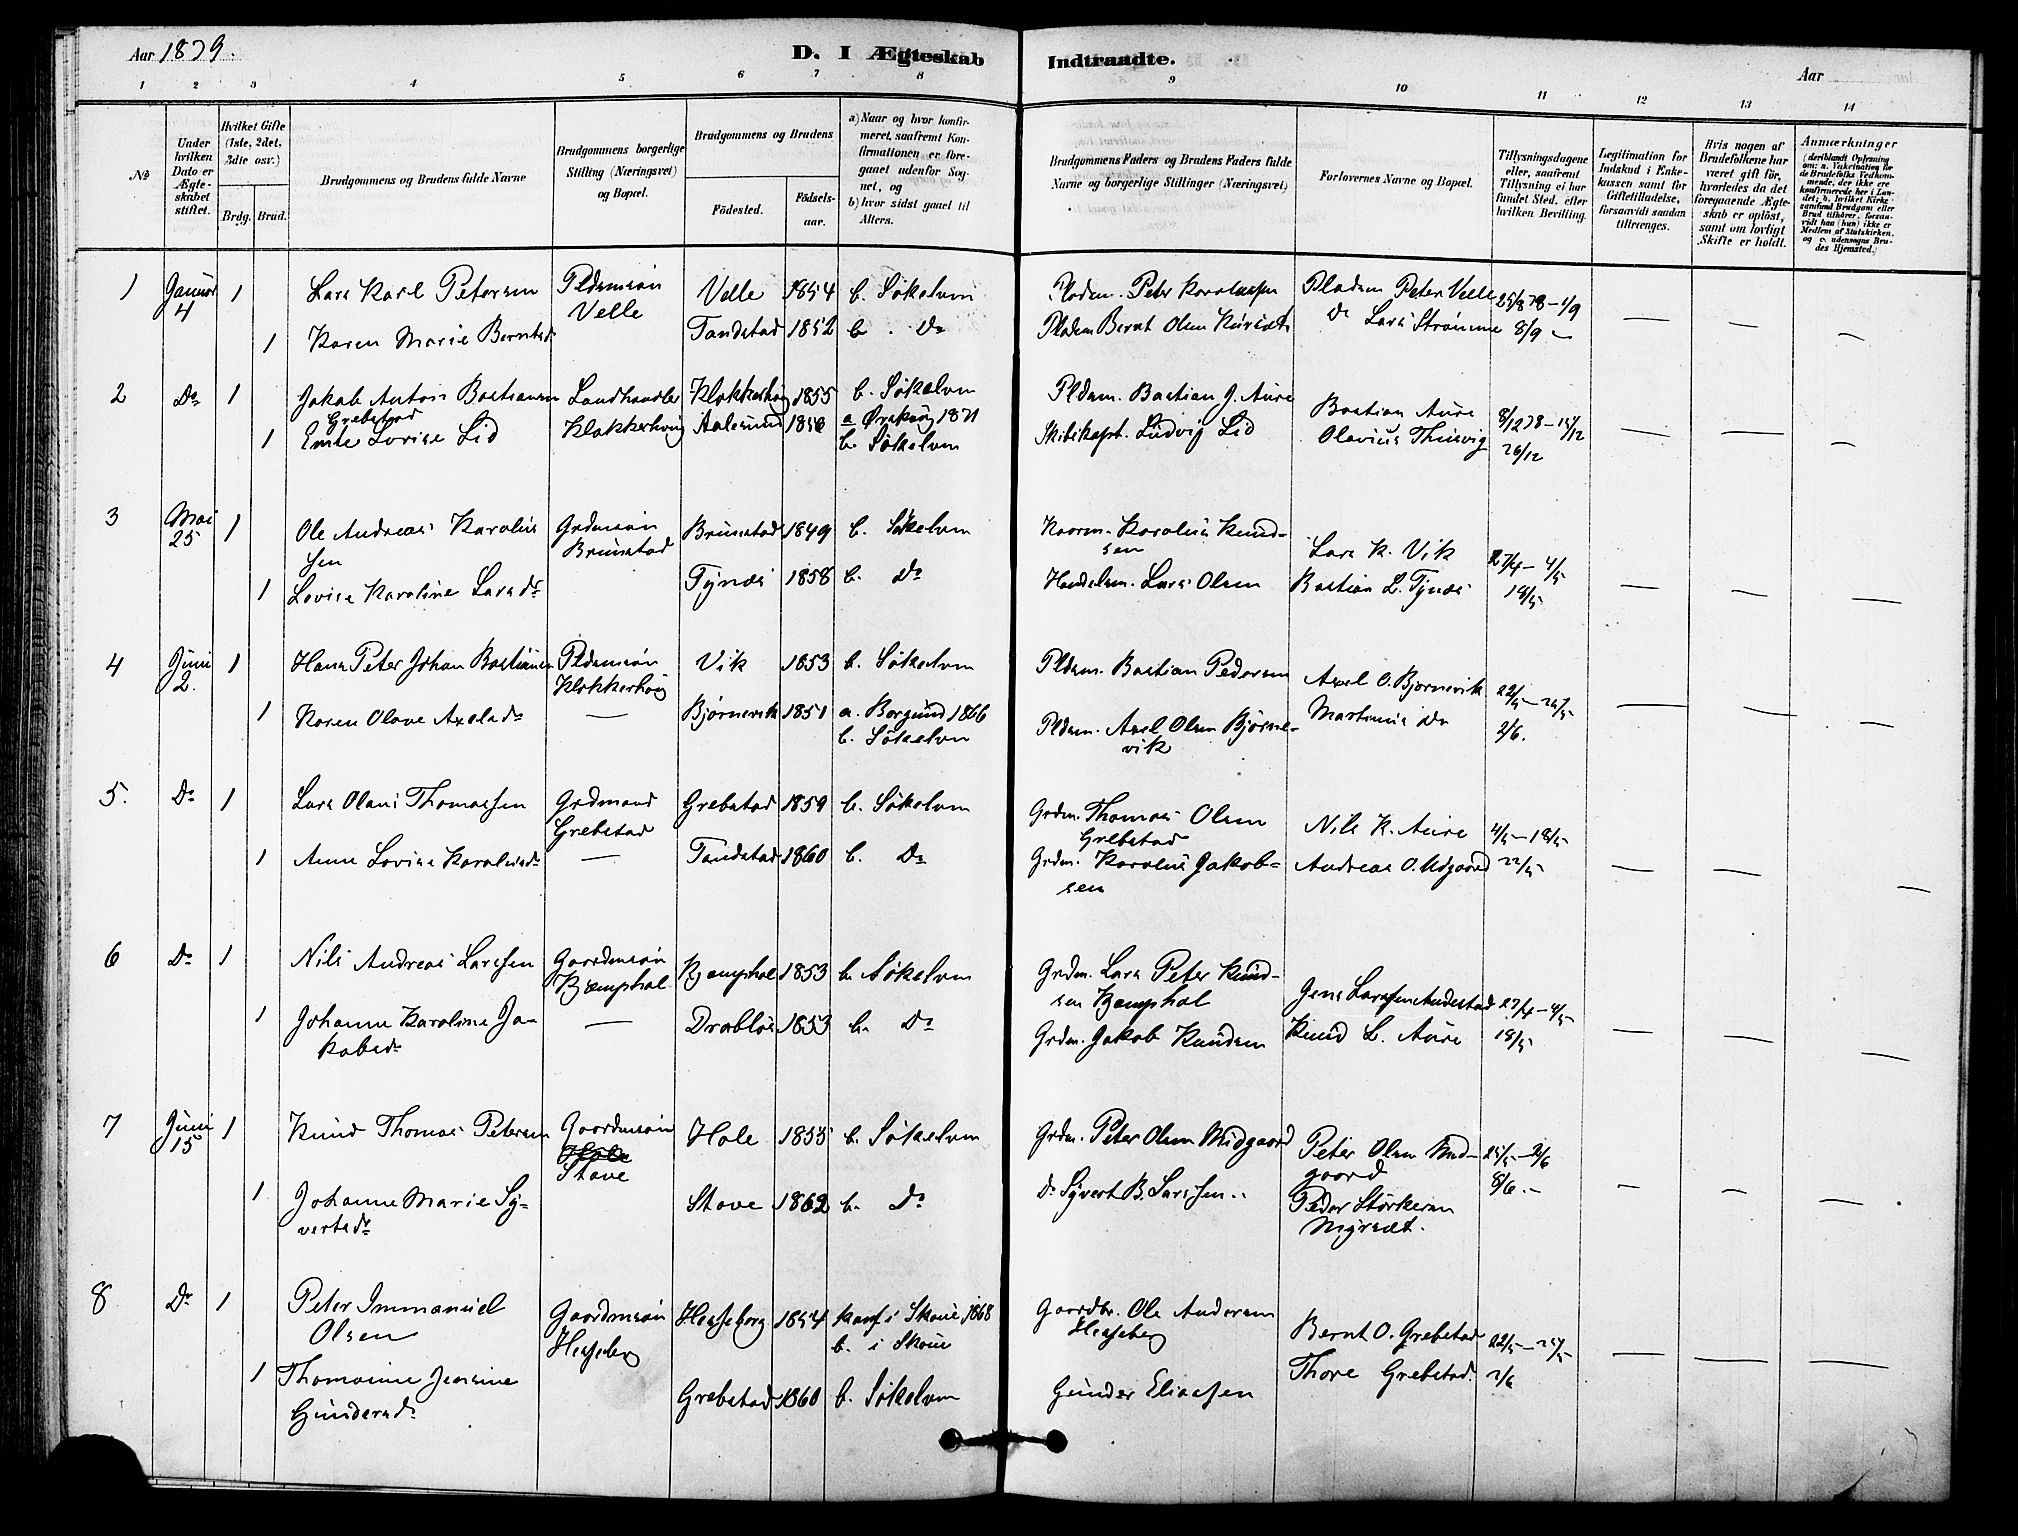 Aar 1879.
D. I Ægteskab Indtraadte.
Aar
1 2 3 4 5 6 7 8 9 10 11 12 13 14
No
Under hvilken Dato er Ægteskabet stiftet.
Hvilket Gifte (1ste, 2det, 3die osv.)
Brdg. Brud.
Brudgommens og Brudens fulde Navne
Brudgommens borgerlige Stilling (Næringsvei) og Bopæl.
Brudgommens og Brudens
Fødested.
Fødselsaar.
a) Naar og hvor konfirmeret, saafremt Konfirmationen er foregaaet udenfor Sognet, og
b) hvor sidst gaaet til Alters.
Brudgommens Faders og Brudens Faders fulde Navne og borgerlige Stillinger (Næringsvei)
Forlovernes Navne og Bopæl.
Tillysningsdagene eller, saafremt Tillysning ei har fundet Sted, efter hvilken Bevilling.
Legitimation for Indskud i Enkekassen samt for Giftetilladelse, forsaavidt saadan tiltrænges.
Hvis nogen af Brudefolkene har været gift før, hvorledes da det foregaaende Ægteskab er opløst, samt om lovligt Skifte er holdt.
Anmærkninger
1 Januar 4 1 Lars Karl Petersen Pldsmsøn Velle Velle 1854 b. Søkelven Pladsm. Peter Pladsm Peter Velle 25/8 78 – 1/9
1 Karen Marie Berntsdr Tandstad 1852 b. Do Pladsm Bernt Olsen Do Lars Strømme 8/9 –
2 Do 1 Jakob Anton Bastiansen Landhandler Klokkerhoug 1855 b. Søkelven Pldsm. Bastian J. Aure Bastian Aure 8/12 78 – 15/12
Grebstad
1 Lovise Lid Klokkerhoug Aalesund 1856 a Ørskoug 1871 Skibskapt. Ludvig Lid Olavius 26/12
b. Søkelven
3 Mai 25 1 Ole Andreas Karoliussen Grdmsøn Brunstad Brunstad 1849 b. Søkelven Karolius Knudsen Lars K. Vik 27/4 – 4/5
1 Lovise Karoline Larsdr Tynes 1858 b. Do Handelsm. Lars Olsen Bastian L. Tynes 18/5
4 Juni 2. 1 Hans Peter Johan Bastiansen Pldsmsøn Klokkerhoug Vik 1853 b. Søkelven Pldsm. Bastian Pedersen Axel O. Bjørnevik 22/5 – 25/5
1 Karen Olave Axelsdr — Bjørnevik 1851 a. Borgund 1866 Pldsm. Axel Olsen Bjørnevik Martinus Do 2/6.
b. Søkelven
5. Do 1 Lars Olaus Thomassen Grdmand Grebstad Grebstad 1859 b. Søkelven Grdm. Thomas Olsen Grebstad Nils K. Aure 4/5 – 18/5
1 Anne Lovise Karoliusdr — Tandstad 1860 b. Do Grdm. Karolius Jakobsen Andreas O. Midgaard 22/5
6 Do 1 Nils Andreas Larssen Gaardmsøn Kjæmphol Kjæmphol 1853 b. Søkelven Grdm. Lars Peter Knudsen Kjæmphol Jens Larssen Andestad 27/4 – 4/5
1 Johanne Karoline Jakobsdr — Drabløs 1853 b. Do Grdm. Jakob Knudsen Knud L. Aure 18/5
7 Juni 15 1 Knud Thomas Petersen Gaardmsøn Hole Stave Hole 1855 b. Søkelven Grdm. Peter Olsen Midgaard Peter Olsen Midgaard 25/5 – 2/6
1 Johanne Marie Syvertsdr Stave 1862 b. Do Do Syvert B. Larssen Peder Størkersen Myrsæt. 8/6. –
8 Do 1 Peter Immanuel Olsen Gaardmsøn Hesseberg Hesseberg 1854 konf i Skoue 1868 Gaardbr. Ole Andersen Hesseberg Bernt O. Grebstad 22/5 – 25/5
b. i Skoue
1 Thomasine Jensine Gundersdr Grebstad 1860 b. Søkelven Gunder Eliassen Thore Grebstad. 2/6